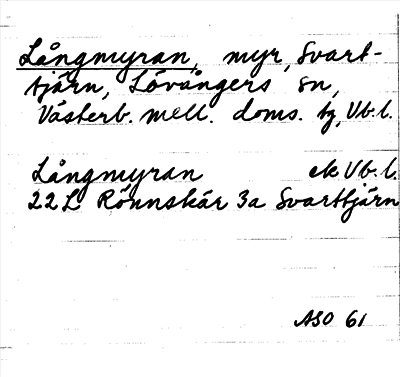 Långmyran, myr, Svart-
tjärn, Lövångers sn,
Västerb. mell. doms. tg, Vb.l.
Långmyran ek Vb.l.
22L Rönnskär 3a Svarttjärn
ASO 61